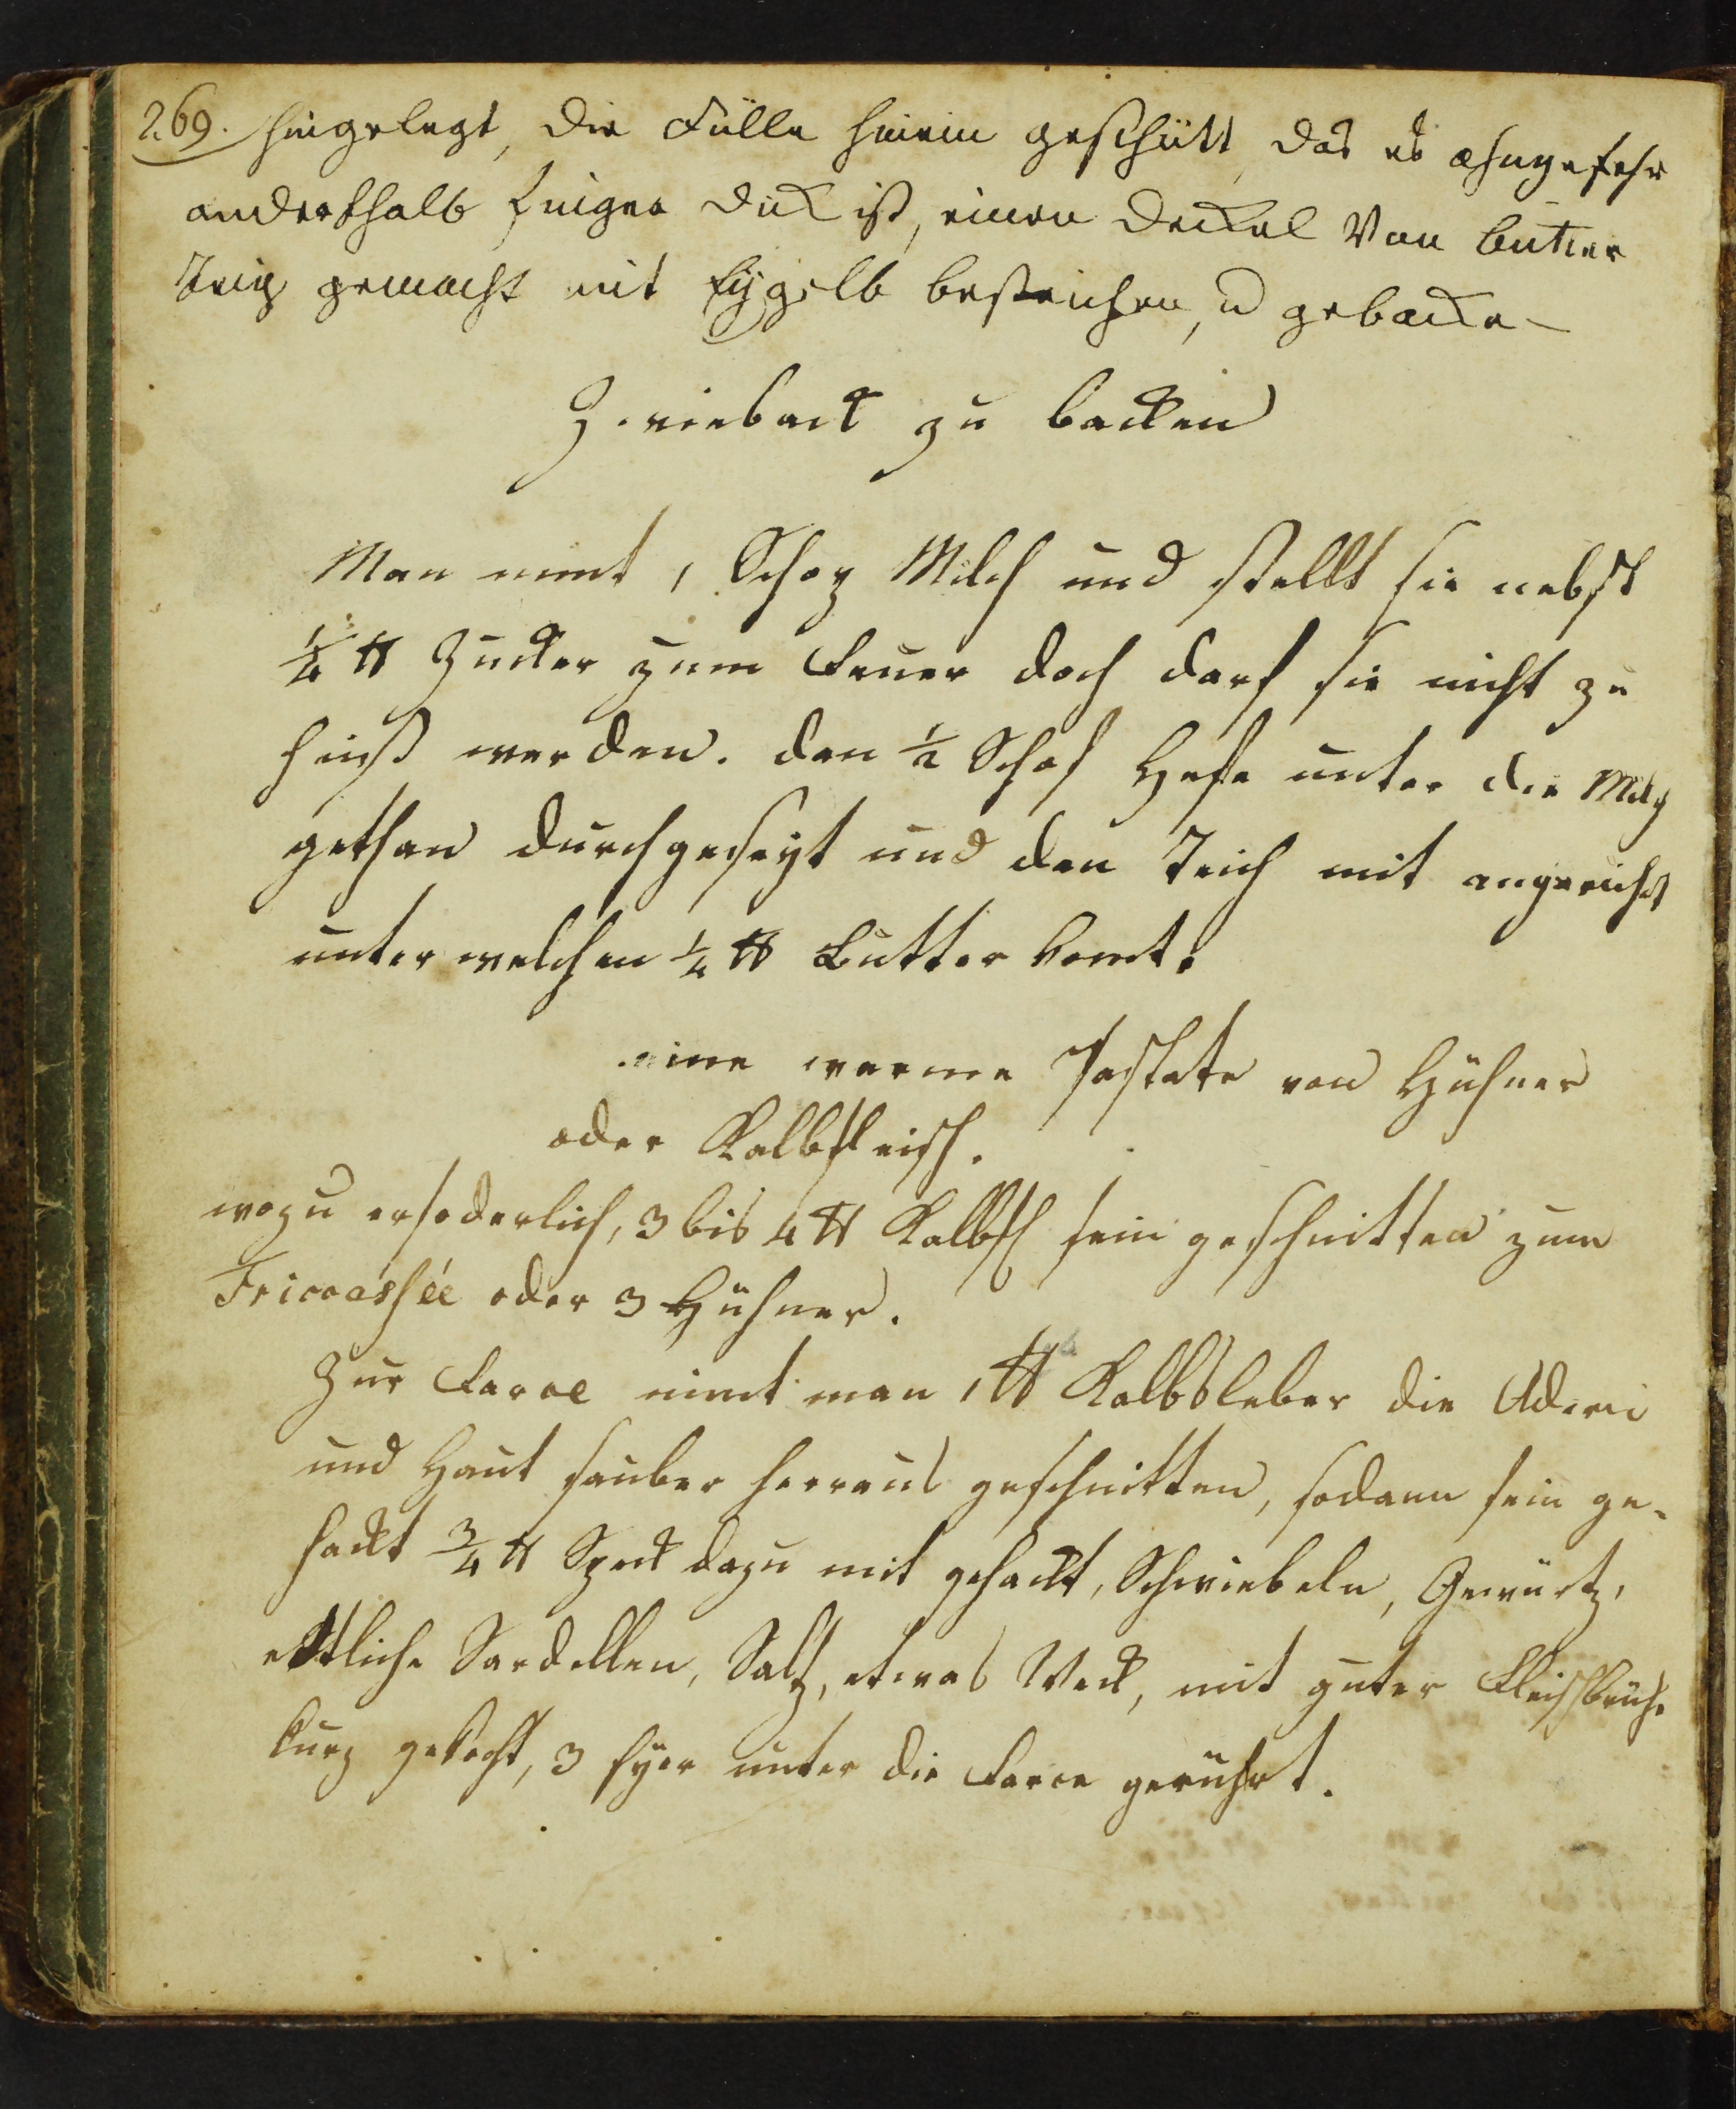 269. hingelegt, die Fülle hinein geschütt, das es ohngefehr
anderthalb finger dick ist, einen deckel Von butter
Teig gemacht mit Eÿgelb bestrichen, u gebacken
Zwieback zu backen
Man nimt 1 Schop Milch und stellt sie nebst
¼ ℔ Zucker zum Feuer doch darf sie nicht zu
heiß werden. dan ½ Schop Hefe unter die Milch
gethan durchgeseyt und den Teich mit angericht
unter welchen ¼ ℔ Butter komt.
eine warme Pastete von Hühner
oder Kalbfleisch.
wozu erfoderlich, 3 bis 4 ℔ Kalbfl fein geschnitten zum
Fricassée oder 3 Hühner.
Zur Farce nimt man 1 ℔ Kalbsleber die Adern
und Haut sauber herraus geschnitten, sodann fein ge-
hackt ¾ ℔ Speck dazu mit gehackt, Schwiebeln, Gewürtz,
ettliche Sardellen, Saltz, etwas Weck, mit guter Fleischbrühe
kurz gekocht, 3 Eyer unter die Farce gerührt.